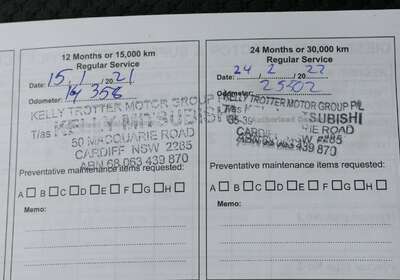 12 Months or 15,000 km
Regular Service
Date: 15 / 1 / 20 21
Odometer:
KELLY TROTTER MOTOR GROUP
T/as KELLY MITSUBISHI
50 MACQUARIE ROAD
CARDIFF NSW 2285
ABN 68 063 439 870
Preventative maintenance items requested:
A B C D E F G H
Memo:
24 Months or 30,000 km
Regular Service
Date: 24 / 2 / 20 22
Odometer:
KELLY TROTTER MOTOR GROUP P/L
T/as SUBISHI
IE ROAD
CARDIFF NSW 2285
ABN 68 063 439 870
Preventative maintenance items requested:
A B C D E F G H
Memo: